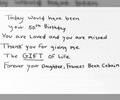 Today would have been
your 50th Birthday
You are loved and you are missed
Thank you for giving me
The GIFT of life
Forever your Daughter, Frances Bean Cobain